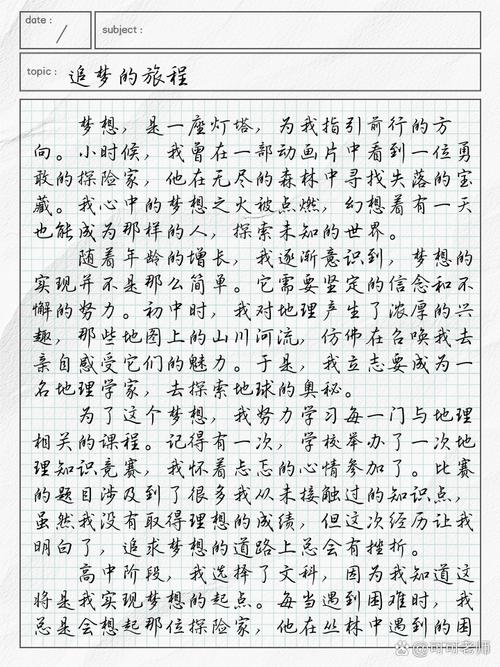 date:
subject:
topic: 追梦的旅程
梦想，是一座灯塔，为我指引前行的方
向。小时候，我曾在一部动画片中看到一位勇
敢的探险家，他在无尽的森林中寻找失落的宝
藏。我心中的梦想之火被点燃，幻想着有一天
也能成为那样的人，探索未知的世界。
随着年龄的增长，我逐渐意识到，梦想的
实现并不是那么简单。它需要坚定的信念和不
懈的努力。初中时，我对地理产生了浓厚的兴
趣，那些地图上的山川河流，仿佛在召唤我去
亲自感受它们的魅力。于是，我立志要成为一
名地理学家，去探索地球的奥秘。
为了这个梦想，我努力学习每一门与地理
相关的课程。记得有一次，学校举办了一次地
理知识竞赛，我怀着忐忑的心情参加了。比赛
的题目涉及到了很多我从未接触过的知识点，
虽然我没有取得理想的成绩，但这次经历让我
明白了，追求梦想的道路上总会有挫折。
高中阶段，我选择了文科，因为我知道这
将是我实现梦想的起点。每当遇到困难时，我
总是会想起那位探险家，他在丛林中遇到的困
@可可老师